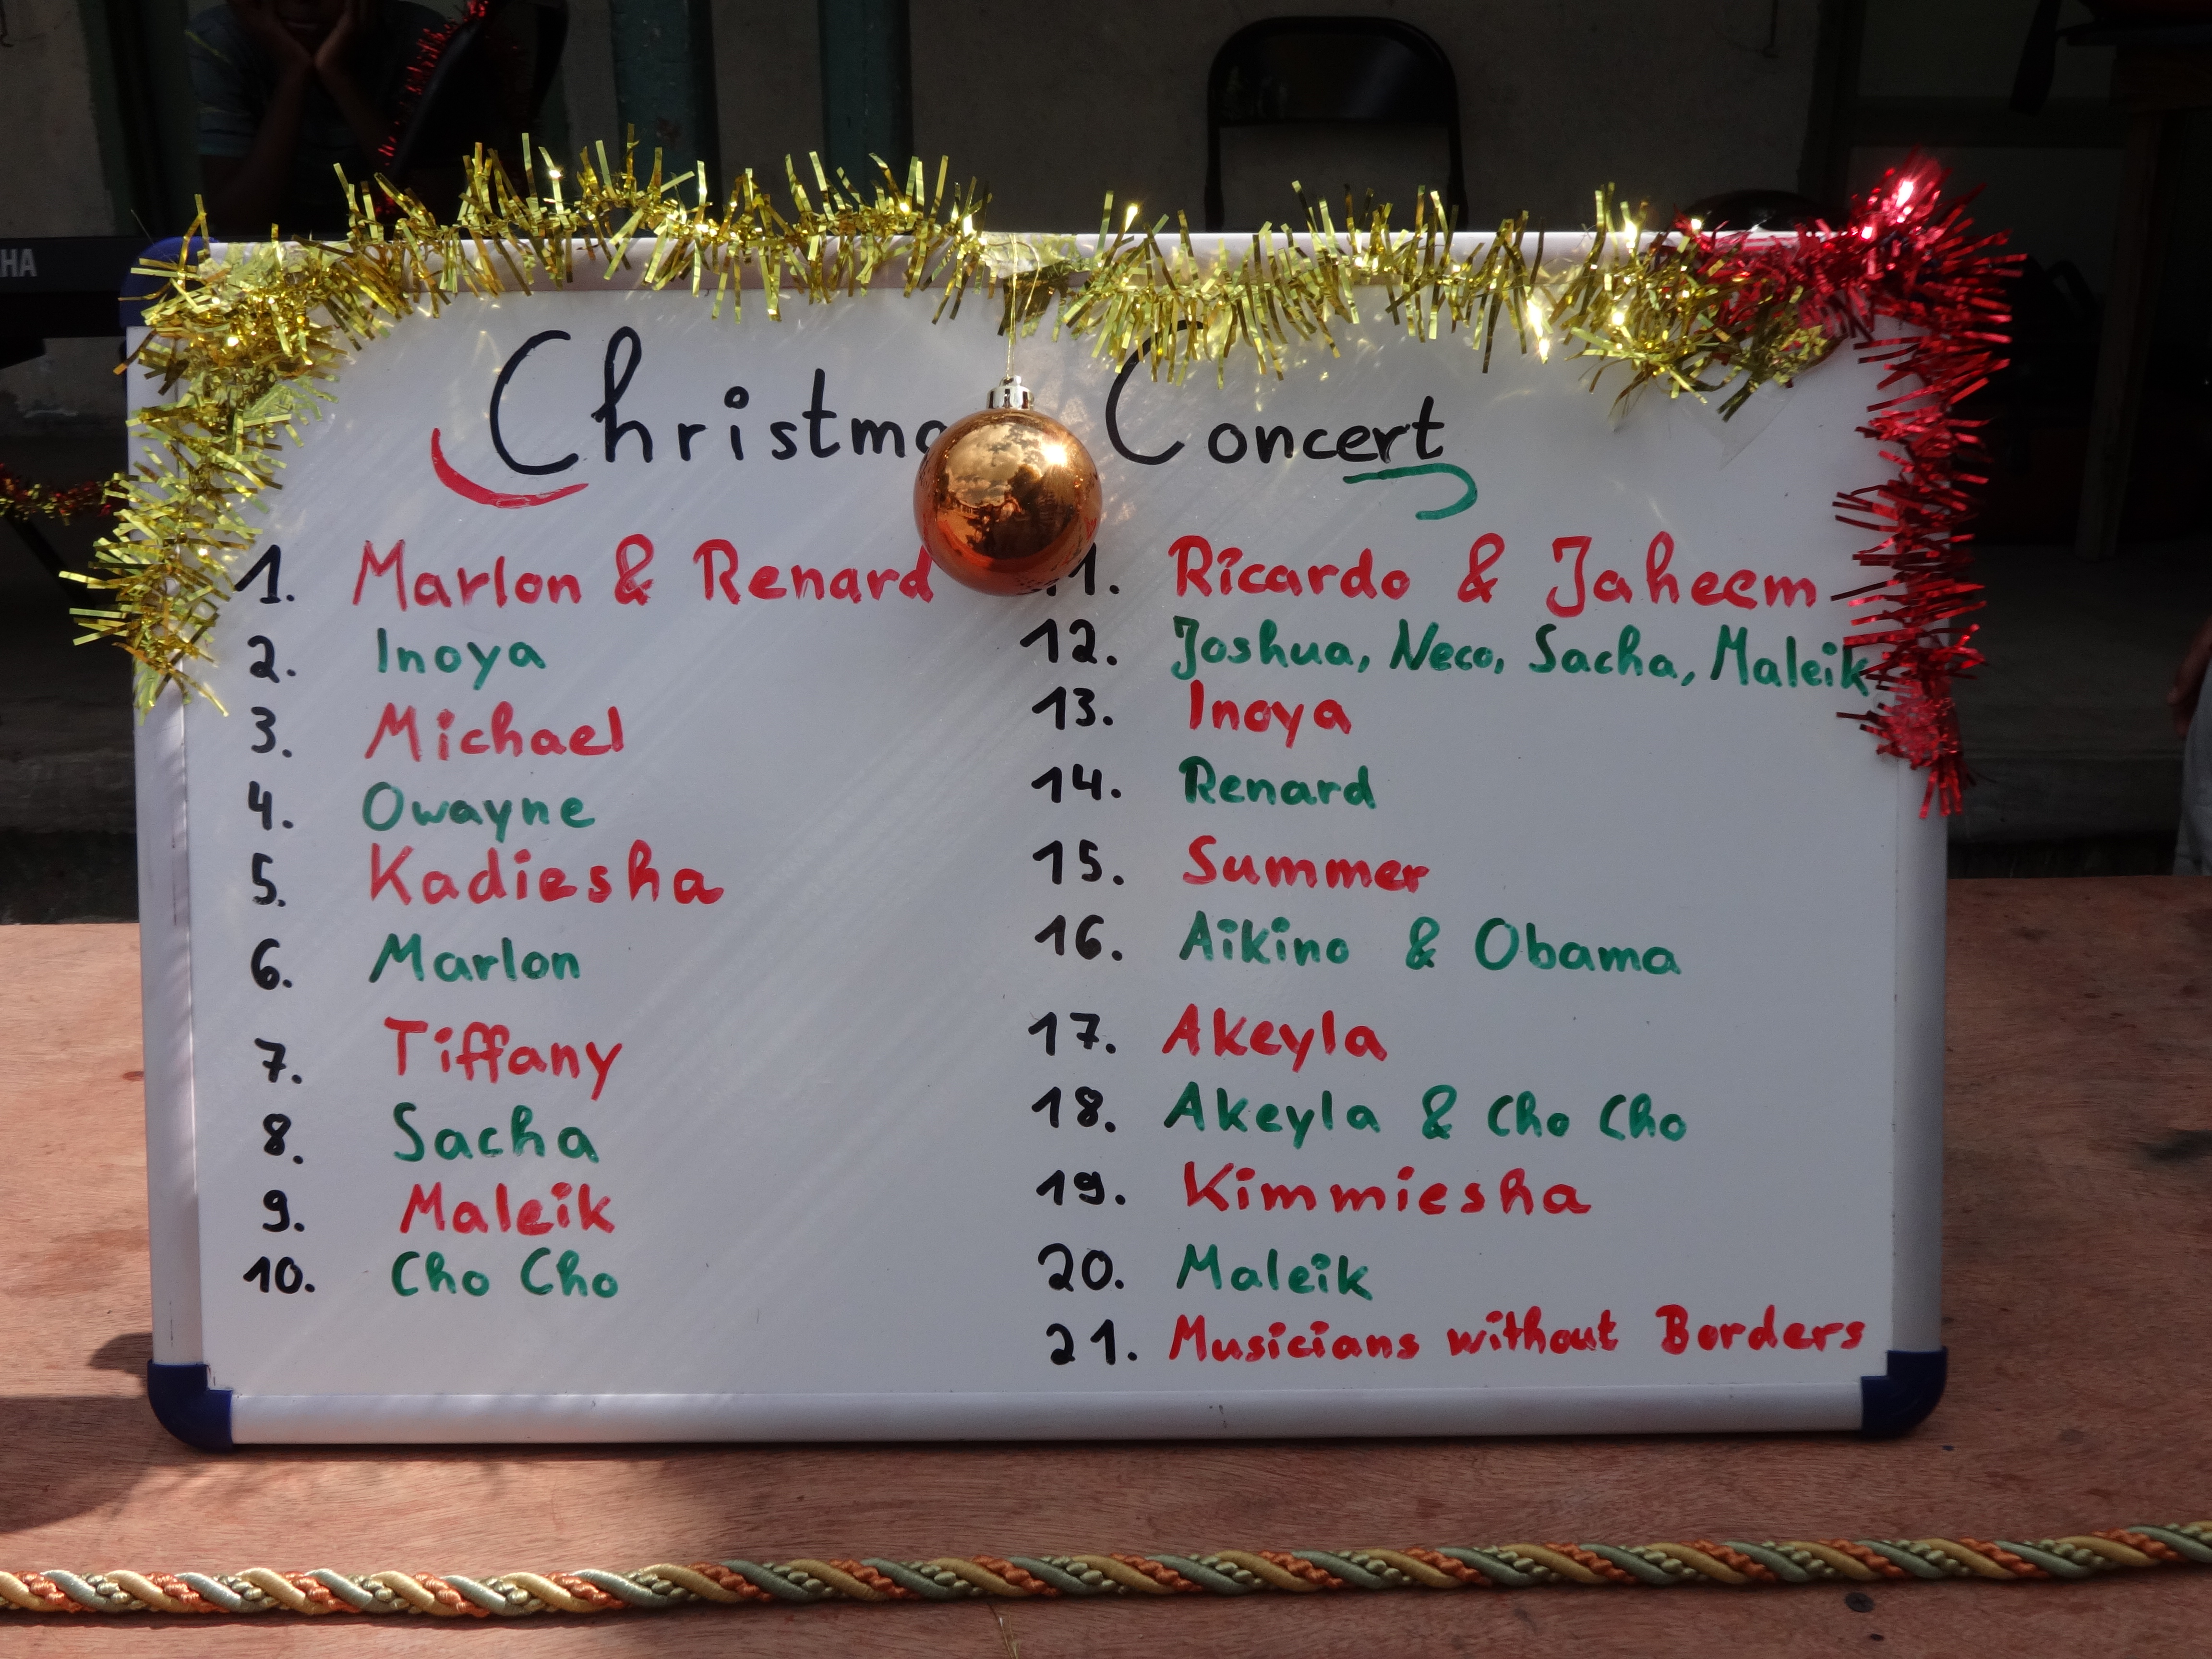 HA
Christma Concert
1. Marlon & Renard
2. Inoya
3. Michael
4. Owayne
5. Kadiesha
6. Marlon
7. Tiffany
8. Sacha
9. Maleik
10. Cho Cho
1. Ricardo & Jaheem
12. Joshua, Neco, Sacha, Maleik
13. Inoya
14. Renard
15. Summer
16. Aikino & Obama
17. Akeyla
18. Akeyla & Cho Cho
19. Kimmiesha
20. Maleik
21. Musicians without Borders